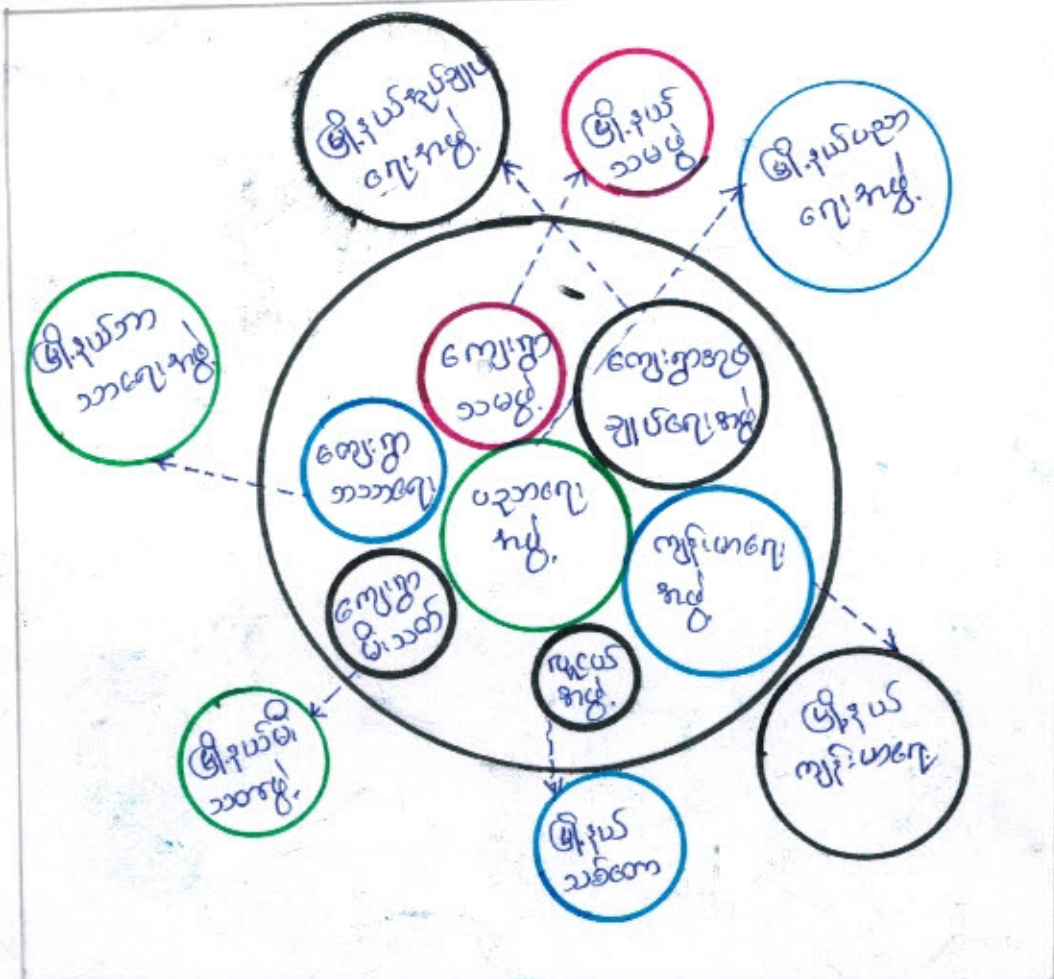 မြို့နယ်အုပ်ချုပ်
ရေးအဖွဲ့
မြို့နယ်
သမဖွဲ့
မြို့နယ်ပညာ
ရေးအဖွဲ့
မြို့နယ်ဘာ
သာရေးအဖွဲ့
ကျေးရွာ
သမဖွဲ့
ကျေးရွာအုပ်
ချုပ်ရေးအဖွဲ့
ကျေးရွာ
ဘာသာရေး
ပညာရေး
အဖွဲ့
ကျန်းမာရေး
အဖွဲ့
ကျေးရွာ
မီးသတ်
လူငယ်
အဖွဲ့
မြို့နယ်မီး
သတ်ဖွဲ့
မြို့နယ်
ကျန်းမာရေး
မြို့နယ်
သစ်တော